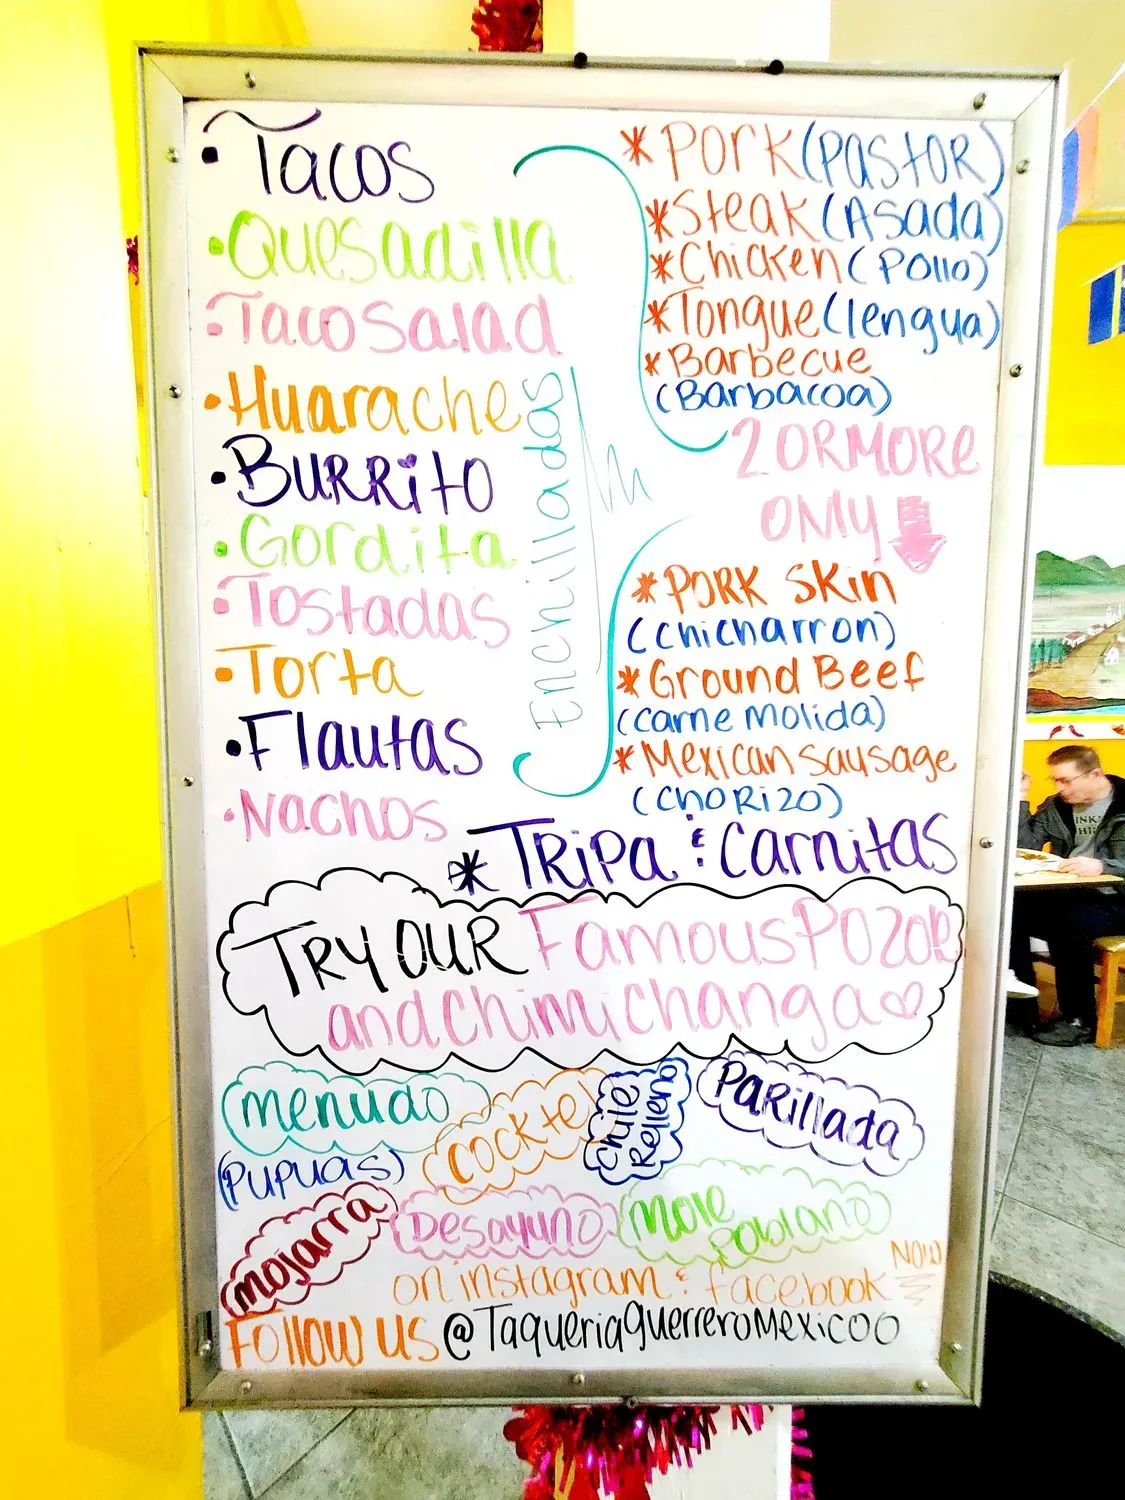 • Tacos
• Quesadilla
• Taco Salad
• Huarache
• BURRito
• Gordita
• Tostadas
• Torta
• Flautas
• Nachos
Enchilladas
* Pork (Pastor)
* Steak (Asada)
* Chicken (Pollo)
* Tongue (lengua)
* Barbecue
(Barbacoa)
2 OR MORE
ONly
* PORK SKin
(chicharron)
* Ground Beef
(carne molida)
* Mexican sausage
(CHORIZO)
* TRiPa & Carnitas
TRY OUR Famous Pozole
and Chimichanga
menudo
cocktel
Chile
Relleno
PaRillada
(PUPUAS)
mojarra
Desayuno
Mole
Poblano
on instagram & facebook NOW
Follow us @TaqueriaguerreroMexicoo